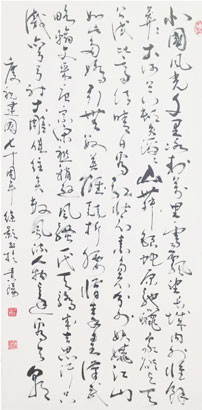 北國風光千里冰封万里雪飄望长城内外惟餘
莽莽大河上下顿失滔滔山舞银蛇原驰蜡象欲与天
公试比高须晴日看红装素裹分外妖娆江山
如此多娇引无数英雄竞折腰惜秦皇漢武
略输文采唐宗宋祖稍逊风骚一代天骄成吉思汗只
識弯弓射大雕俱往矣数风流人物还看今朝
庆祝建国七十周年 书於贵阳